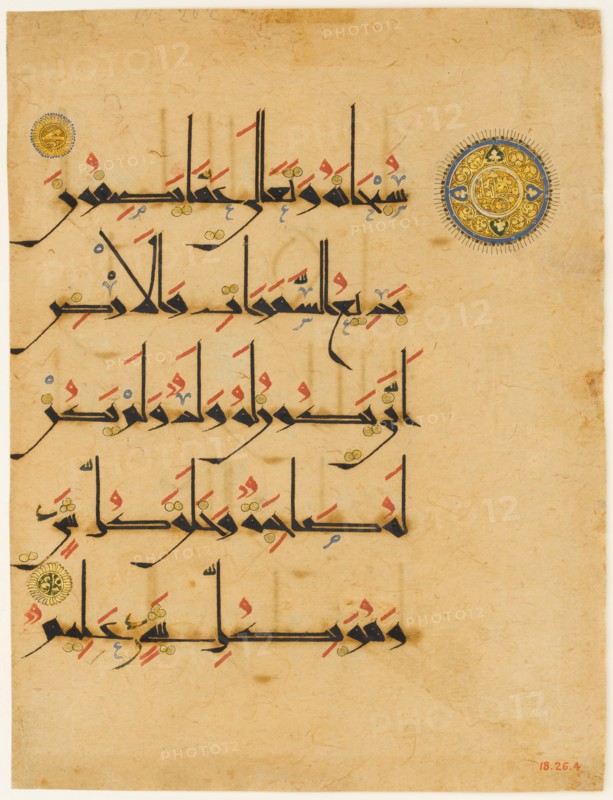 سُبْحَانَهُ وَتَعَالَى عَمَّا يَصِفُونَ
بَدِيعُ السَّمَوَاتِ وَالْأَرْضِ
أَنَّى يَكُونُ لَهُ وَلَدٌ وَلَمْ يَكُنْ
لَهُ صَاحِبَةٌ وَخَلَقَ كُلَّ شَيْءٍ
وَهُوَ بِكُلِّ شَيْءٍ عَلِيمٌ
18.26.4
PHOTO12